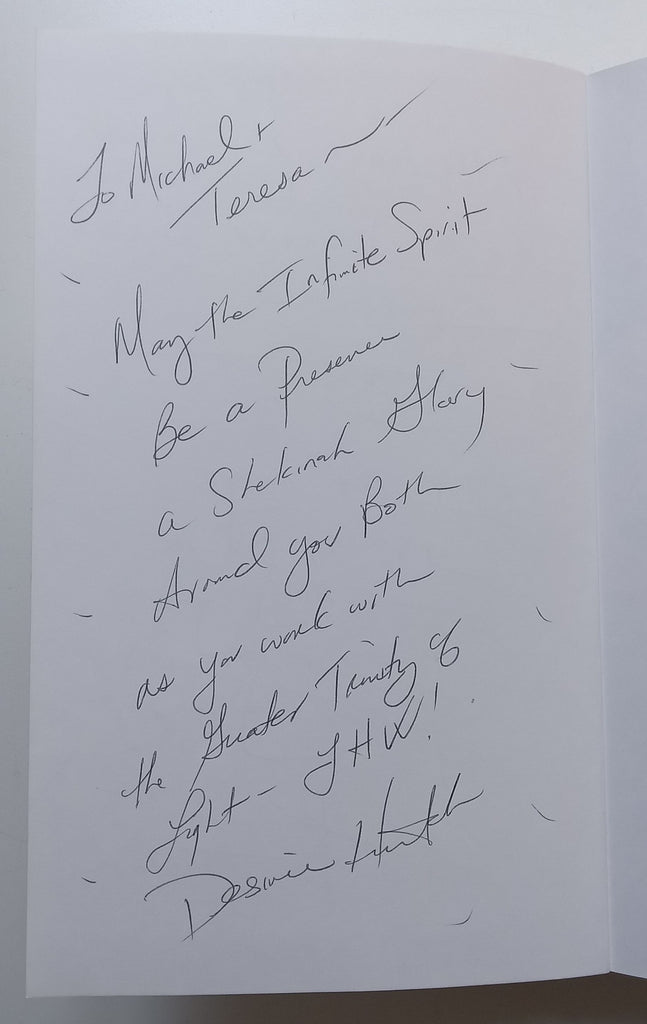 To Michael +
Teresa
May the Infinite Spirit
Be a Presence
a Shekinah Glory
Around you Both
as you work with
the Greater Trinity of
Light - JHW!